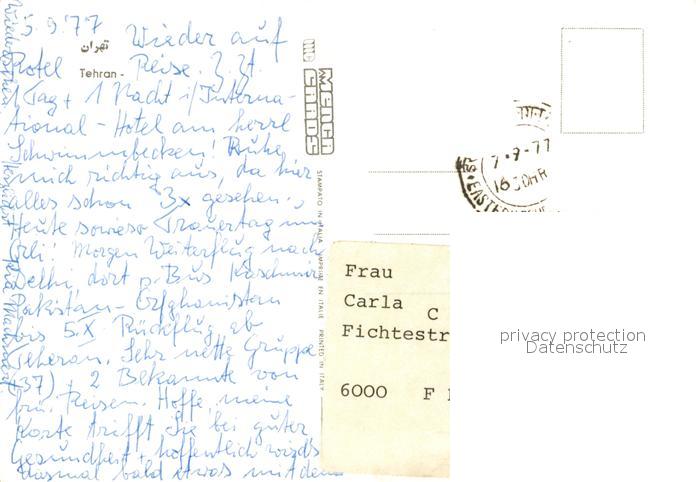 5.9.77
تهران
Tehran -
Wieder auf
Rotel - Reise. Z. Zt.
1 Tag + 1 Nacht i/Interna-
tional - Hotel am herrl
Schwimmbecken! Ruhe
mich richtig aus, da hier
alles schon 3x gesehen.
Heute sowieso Trauertag
Morgen Weiterflug nach
Delhi, dort p. Bus Kaschmir
Pakistan - Afghanistan
bis 5.X. Rückflug ab
Teheran. Sehr nette Gruppe
(37), 2 Bekannte von
frü. Reisen. Hoffe, meine
Karte trifft Sie bei guter
Gesundheit + hoffentlich wird's
diesmal bald etwas mit dem
Wiedersehen
MEMCH CARDS
STAMPATO IN ITALIA IMPRIMÉ EN ITALIE PRINTED IN ITALY
7-9-77
1630HR
Frau
Carla C
Fichtestr
6000 F
privacy protection
Datenschutz